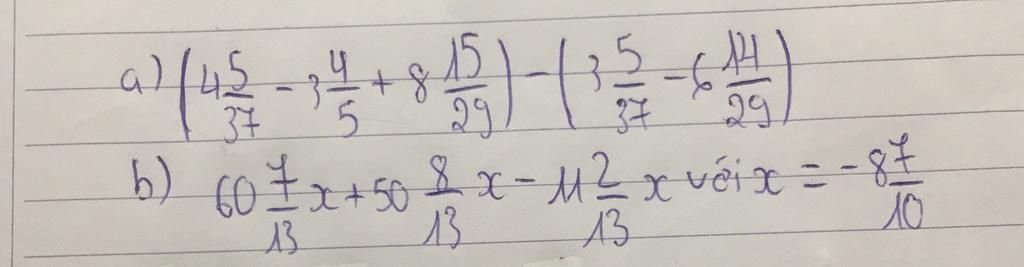 a) (4 5/37 - 3 4/5 + 8 15/29) - (3 5/37 - 6 14/29)
b) 60 7/13 x + 50 8/13 x - 11 2/13 x với x = -8 7/10